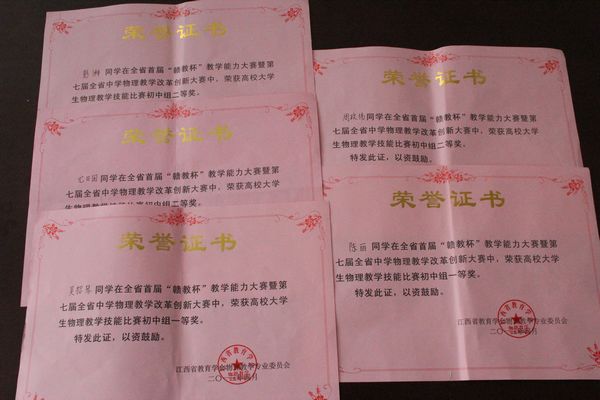 荣誉证书
同学在全省首届“赣教杯”教学能力大赛暨第
七届全省中学物理教学改革创新大赛中，荣获高校大学
生物理教学技能比赛初中组二等奖。
荣誉证书
同学在全省首届“赣教杯”教学能力大赛暨第
七届全省中学物理教学改革创新大赛中，荣获高校大学
生物理教学技能比赛初中组二等奖。
荣誉证书
同学在全省首届“赣教杯”教学能力大赛暨第
七届全省中学物理教学改革创新大赛中，荣获高校大学
生物理教学技能比赛初中组一等奖。
特发此证，以资鼓励。
江西省教育学会物理教学专业委员会
荣誉证书
同学在全省首届“赣教杯”教学能力大赛暨第
七届全省中学物理教学改革创新大赛中，荣获高校大学
生物理教学技能比赛初中组二等奖。
特发此证，以资鼓励。
荣誉证书
陈丽 同学在全省首届“赣教杯”教学能力大赛暨第
七届全省中学物理教学改革创新大赛中，荣获高校大学
生物理教学技能比赛初中组一等奖。
特发此证，以资鼓励。
江西省教育学会物理教学专业委员会